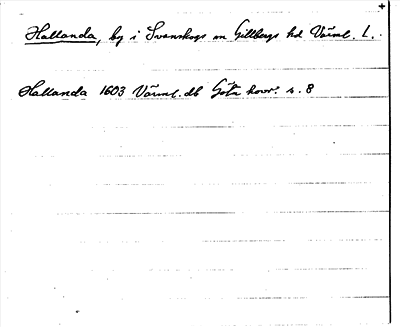 Hallanda, by i Svanskogs sn Gillbergs hd Värml. L.
Hallanda 1603 Värml. db Göta hovr. s. 8